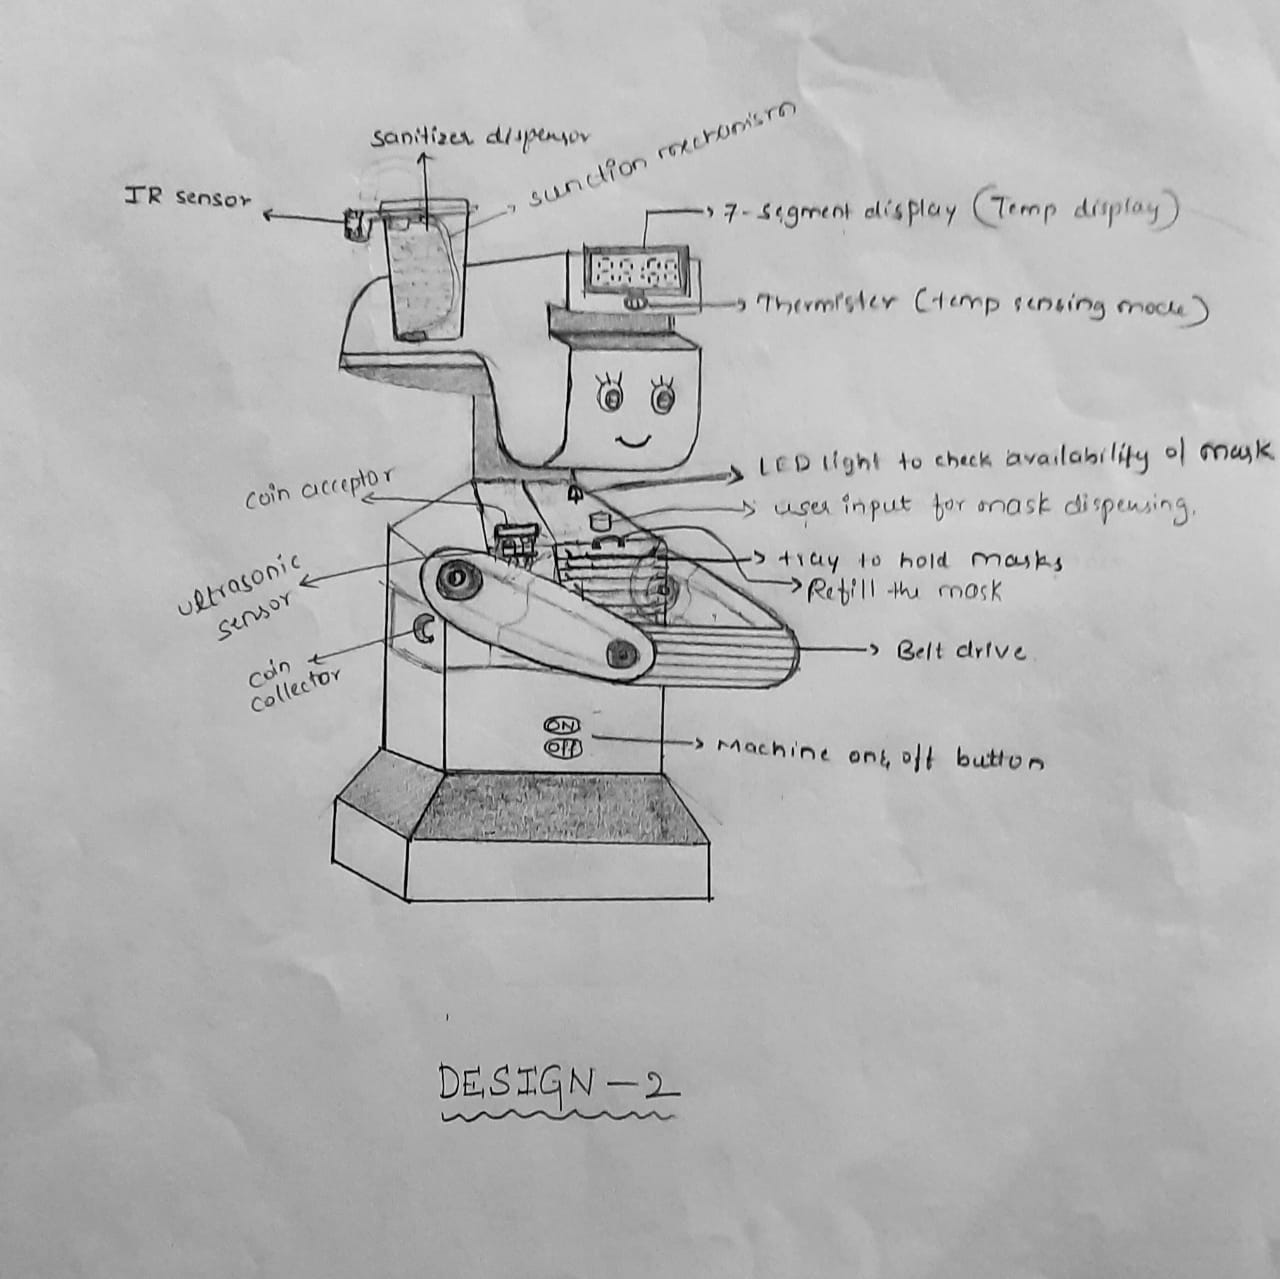 sanitizer dispensor
sunction mechanism
IR sensor
7-segment display (Temp display)
Thermister (temp sensing mode)
LED light to check availability of mask
coin acceptor
user input for mask dispensing.
tray to hold masks
Refill the mask
ultrasonic
sensor
Belt drive.
coin
collector
ON
OFF
Machine on & off button
DESIGN-2